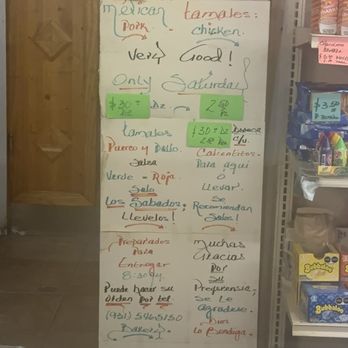 mexican tamales:
Pork. chicken.
Very Good!
Only Saturday
$30 Dz 2
tamales $30 Dz Docena
Puerco y Pollo. 2 c/u.
Salsa Calientitos.
Verde - Roja. Para aqui
Solo o
Los Sabados; Llevar!
Llevelos! Se
Recomiendan
Solos!
Preparados muchas
Para Gracias
Entregar Por
8:30 am. Su
Puede hacer su Preferencia;
Orden Por tel Se Le
Agradece.
Bakery. Dios
Lo Bendiga.
$3.50
Bubbaloo
Bubbaloo